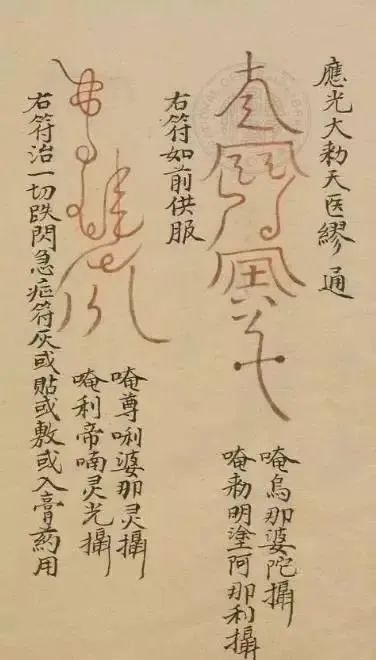 應光大勅天医繆通
唵烏那婆陀攝
唵勅明塗阿那利攝
右符如前供服
唵尊唎婆那灵攝
唵利帝喃灵光攝
右符治一切跌閃急症符灰或貼或敷或入膏藥用